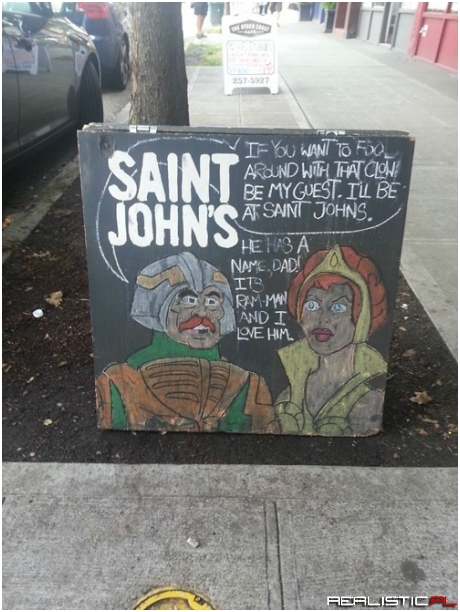 THE OTHER COAST
CAFE
257-5927
SAINT
JOHN'S
IF YOU WANT TO FOOL
AROUND WITH THAT CLOWN
BE MY GUEST. I'LL BE
AT SAINT JOHNS.
HE HAS A
NAME, DAD!
ITS
RAM-MAN
AND I
LOVE HIM.
REALISTICAL